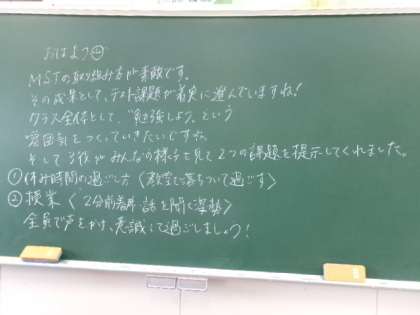 おはよう
MSTの取り組み方が素敵です。
その成果として、テスト課題が着実に進んでいますね!
クラス全体として、"勉強しよう"という
雰囲気をつくっていきたいですね。
そして がみんなの様子を見て2つの課題を提示してくれました。
① 休み時間の過ごし方〈教室で落ちついて過ごす〉
② 授業〈2分前着席 話を聞く姿勢〉
全員で声をかけ、意識して過ごしましょう!